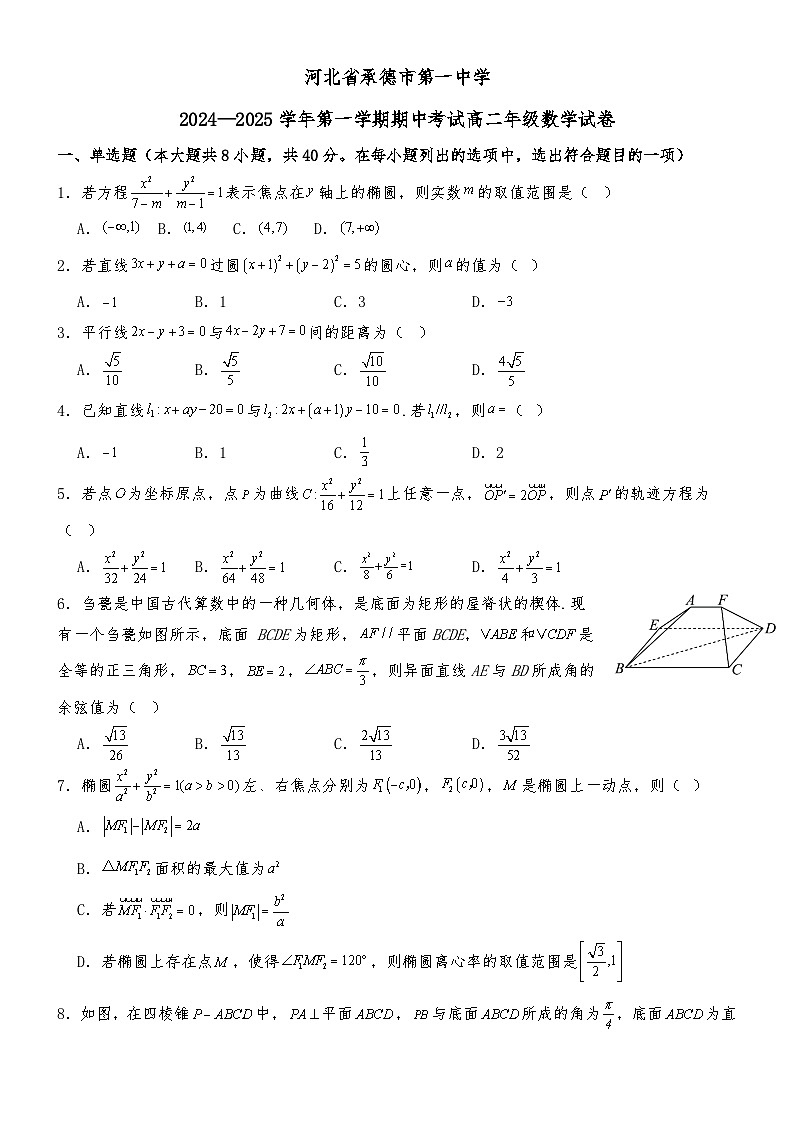 河北省承德市第一中学
2024—2025 学年第一学期期中考试高二年级数学试卷
一、单选题（本大题共 8 小题，共 40 分。在每小题列出的选项中，选出符合题目的一项）
1．若方程 x²/(7−m) + y²/(m−1) = 1 表示焦点在 y 轴上的椭圆，则实数 m 的取值范围是（ ）
A．(−∞,1) B．(1,4) C．(4,7) D．(7,+∞)
2．若直线 3x + y + a = 0 过圆 (x+1)² + (y−2)² = 5 的圆心，则 a 的值为（ ）
A．−1 B．1 C．3 D．−3
3．平行线 2x − y + 3 = 0 与 4x − 2y + 7 = 0 间的距离为（ ）
A．√5/10 B．√5/5 C．√10/10 D．4√5/5
4．已知直线 l₁ : x + ay − 20 = 0 与 l₂ : 2x + (a+1)y − 10 = 0．若 l₁//l₂，则 a =（ ）
A．−1 B．1 C．1/3 D．2
5．若点 O 为坐标原点，点 P 为曲线 C : x²/16 + y²/12 = 1 上任意一点，OP′ = 2OP，则点 P′ 的轨迹方程为
（ ）
A．x²/32 + y²/24 = 1 B．x²/64 + y²/48 = 1 C．x²/8 + y²/6 = 1 D．x²/4 + y²/3 = 1
6．刍甍是中国古代算数中的一种几何体，是底面为矩形的屋脊状的楔体．现
有一个刍甍如图所示，底面 BCDE 为矩形，AF // 平面 BCDE，∨ABE 和 ∨CDF 是
全等的正三角形，BC = 3，，BE = 2，，∠ABC = π/3，，则异面直线 AE 与 BD 所成角的
余弦值为（ ）
A．√13/26 B．√13/13 C．2√13/13 D．3√13/52
A F
E D
B C
7．椭圆 x²/a² + y²/b² = 1(a > b > 0) 左、右焦点分别为 F₁(−c,0)，F₂(c,0)，，M 是椭圆上一动点，则（ ）
A．|MF₁| − |MF₂| = 2a
B．△MF₁F₂ 面积的最大值为 a²
C．若 MF₁ · F₁F₂ = 0，则 |MF₁| = b²/a
D．若椭圆上存在点 M，使得 ∠F₁MF₂ = 120°，则椭圆离心率的取值范围是 [√3/2,1]
8．如图，在四棱锥 P − ABCD 中，PA ⊥ 平面 ABCD，PB 与底面 ABCD 所成的角为 π/4，底面 ABCD 为直